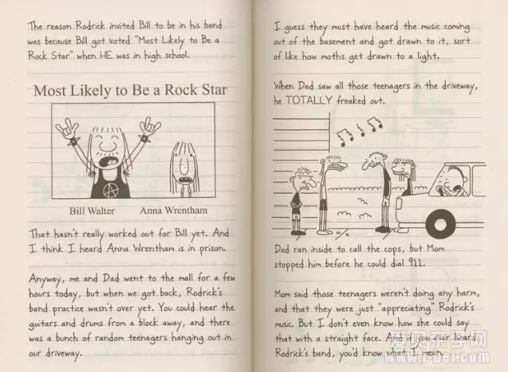 The reason Rodrick invited Bill to be in his band
was because Bill got voted "Most Likely to Be a
Rock Star" when HE was in high school.
Most Likely to Be a Rock Star
Bill Walter Anna Wrentham
That hasn't really worked out for Bill yet. And
I think I heard Anna Wrentham is in prison.
Anyway, me and Dad went to the mall for a few
hours today, but when we got back, Rodrick's
band practice wasn't over yet. You could hear the
guitars and drums from a block away, and there
was a bunch of random teenagers hanging out in
our driveway.
I guess they must have heard the music coming
out of the basement and got drawn to it, sort
of like how moths get drawn to a light.
When Dad saw all those teenagers in the driveway,
he TOTALLY freaked out.
Dad ran inside to call the cops, but Mom
stopped him before he could dial 911.
Mom said those teenagers weren't doing any harm,
and that they were just "appreciating" Rodrick's
music. But I don't even know how she could say
that with a straight face. And if you ever heard
Rodrick's band, you'd know what I mean.